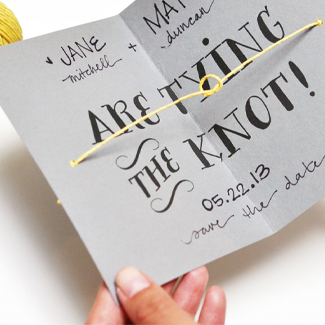 JANE + MAT
mitchell duncan
ARE TYING
THE KNOT!
05.22.13
save the date